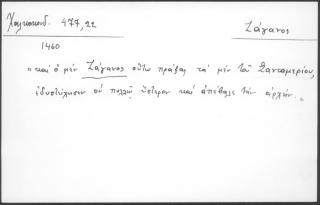 Χαλκοκονδ. 477,22
Ζάγανος
1460
„ καὶ ὁ μὲν Ζάγανος οὕτω πράξας τὰ μὲν τοῦ Σανταμερίου,
ἐδυστύχησεν οὐ πολλῷ ὕστερον καὶ ἀπέβαλε τὴν ἀρχήν. „